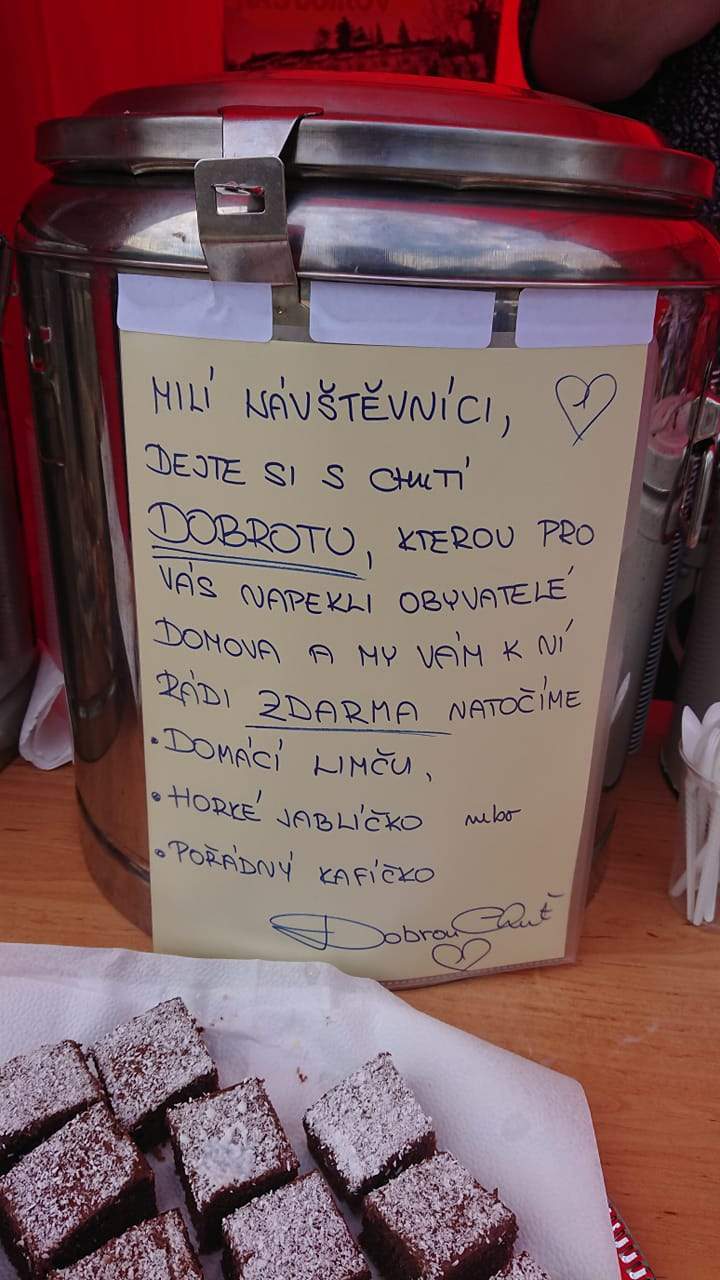 MILÍ NÁVŠTĚVNÍCI,
DEJTE SI S CHUTÍ
DOBROTU, KTEROU PRO
VÁS NAPEKLI OBYVATELÉ
DOMOVA A MY VÁM K NÍ
RÁDI ZDARMA NATOČÍME
• DOMÁCÍ LIMČU,
• HORKÉ JABLÍČKO nebo
• POŘÁDNÝ KAFÍČKO
Dobrou Chuť